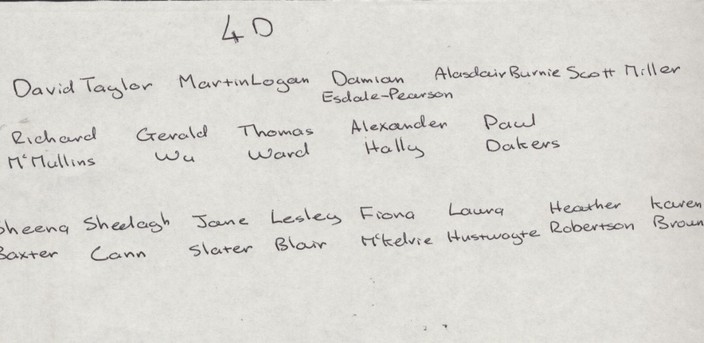 4D
David Taylor Martin Logan Damian Alasdair Burnie Scott Miller
Esdale-Pearson
Richard Gerald Thomas Alexander Paul
McMullins Wu Ward Hally Dakers
Sheena Sheelagh Jane Lesley Fiona Laura Heather Karen
Baxter Cann Slater Blair McKelvie Hustwayte Robertson Brown